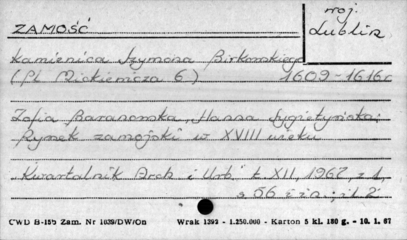 woj.
ZAMOŚĆ Lublin
Kamienica Szymona Birkowskiego
(Pl. Mickiewicza 6) 1609-1616
Zofia Baranowska, Hanna Sygietyńska:
Rynek zamojski w XVIII wieku
"Kwartalnik Arch. i Urb." t. XII, 1967, z. 1,
s. 56 il. 2
CWD B-155 Zam. Nr 1039/DW/On Wrak 1392 - 1.250.000 - Karton 5 kl. 180 g. - 10. 1. 67